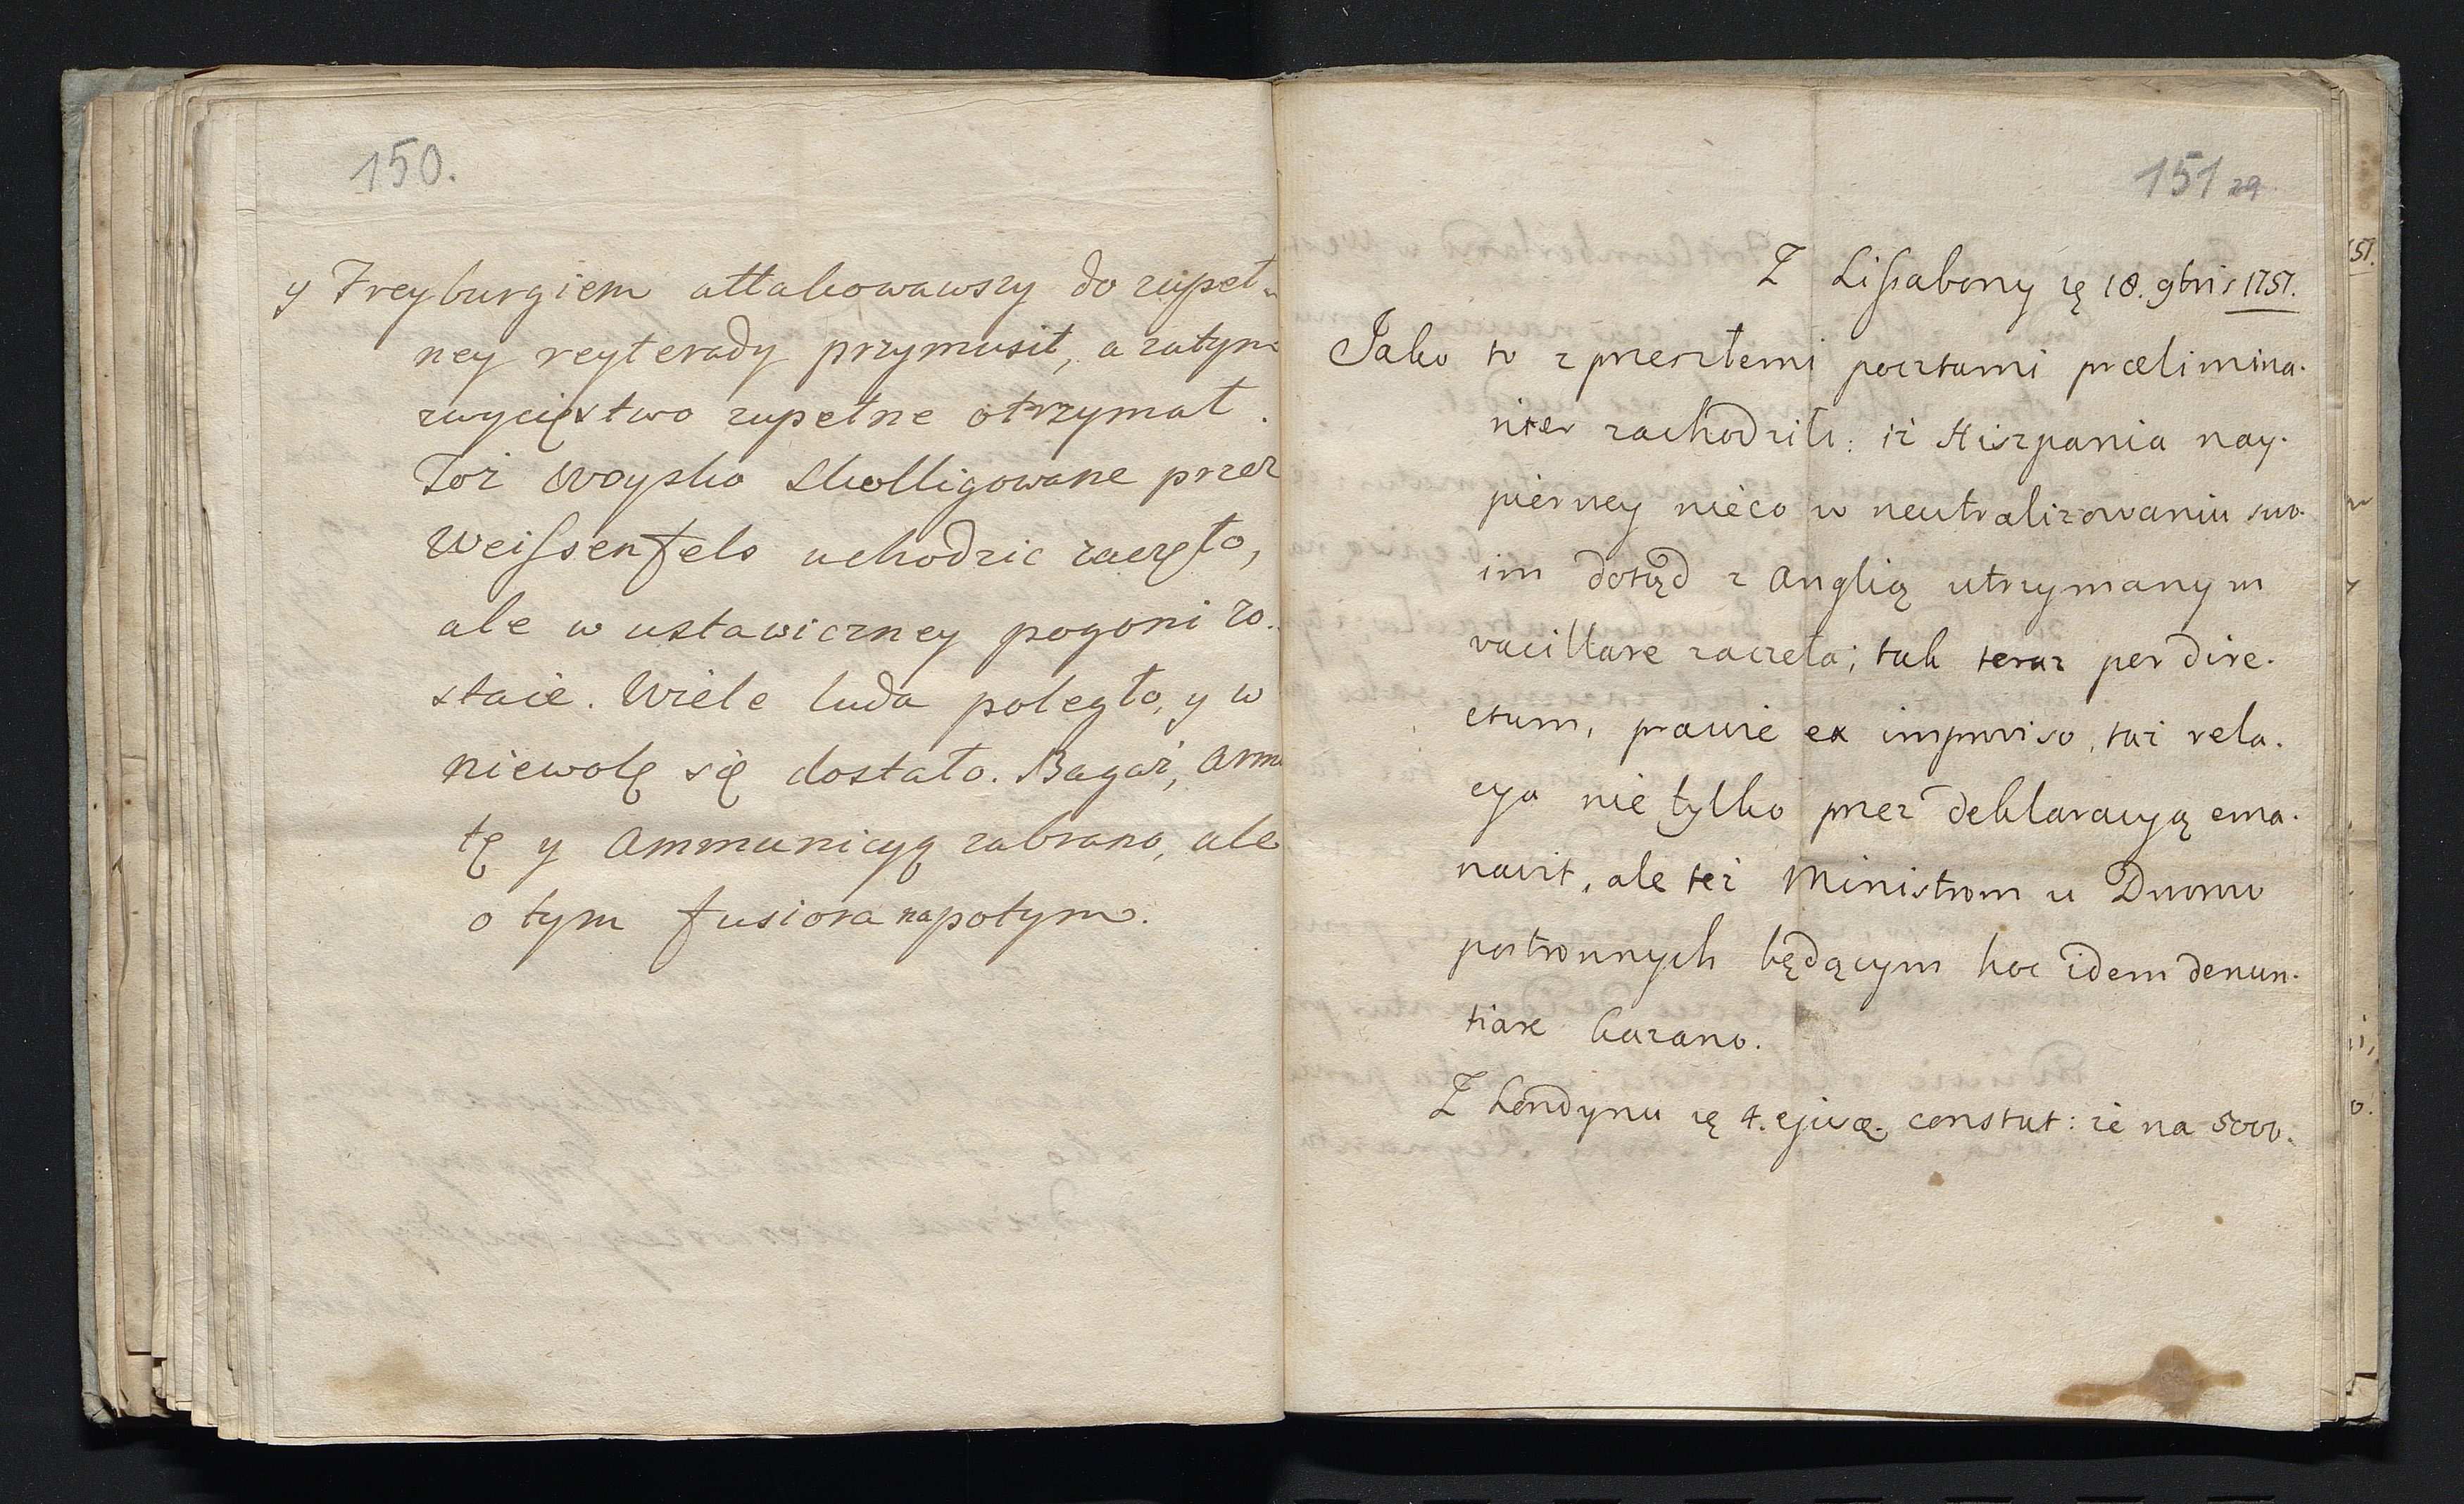 150.
y Freyburgiem attakowawszy do zupeł-
ney reyterady przymusił, a zatym
zwycięstwo zupełne otrzymał.
Toż woysko skolligowane przez
Weissenfels uchodzic zaczęło,
ale w ustawiczney pogoni zo-
staie. Wiele luda poległo, y w
niewolę się dostało. Bagaż, Arma
tę y Ammunicyą zabrano, ale
o tym fusiora napotym.
151 29
Z Lissabony że 18. 9bris 1757.
Jako to z przeszłemi pocztami prælimina-
riter zachodziło: iż Hiszpania nay-
pierwey nieco w neutralizowaniu swo-
im dotąd z Anglią utrzymanym
vacillare zaczęła; tak teraz per dire-
ctum, prawie ex improviso, taż rela-
cya nie tylko przez deklaracyą ema-
navit, ale też Ministrom u Dworow
postronnych będącym hoc idem denun-
tiare kazano.
Z Londynu że 4. ejusd. constat: że na 5000.